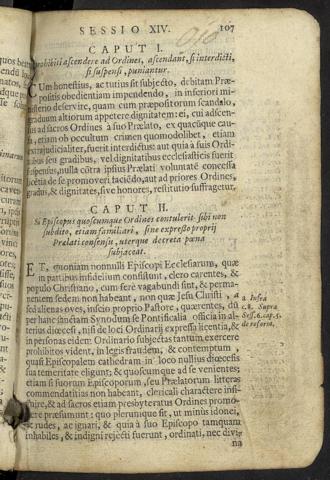 SESSIO XIV. 107
CAPUT I.
prohibiti ascendere ad Ordines, ascendant, si interdicti,
si suspensi, puniantur.
CUm honestius, ac tutius sit subjecto, debitam Præ-
positis obedientiam impendendo, in inferiori mi-
nisterio deservire, quam cum præpositorum scandalo,
graduum altiorum appetere dignitatem: ei, cui ascen-
sus ad sacros Ordines à suo Prælato, ex quacũque cau-
sa, etiam ob occultum crimen quomodolibet, etiam
extrajudicialiter, fuerit interdictus: aut qui à suis Ordi-
nibus seu gradibus, vel dignitatibus ecclesiasticis fuerit
suspensus, nulla cõtra ipsius Prælati voluntatē concessa
licētia de se promoveri faciēdo, aut ad priores Ordines,
gradus, & dignitates, sive honores, restitutio suffragetur.
CAPUT II.
Si Episcopus quoscumque Ordines contulerit sibi non
subdito, etiam familiari, sine expresso proprij
Prælati consensu, uterque decreta pœna
subjaceat.
ET, quoniam nonnulli Episcopi Ecclesiarum, quæ
in partibus infidelium consistunt, clero carentes, &
populo Christiano, cum ferè vagabundi sint, & perma-
nentem sedem non habeant, non quæ Jesu Christi,
sed alienas oves, inscio proprio Pastore, quærentes, dũ
per hanc sanctam Synodum se Pontificalia officia in al-
terius diœcesi, nisi de loci Ordinarij expressa licentia, &
in personas eidem Ordinario subjectas tantum exercere
prohibitos vident, in legis fraudem, & contemptum,
quasi Episcopalem cathedram in loco nullius diœcesis
sua temeritate eligunt; & quoscumque ad se venientes;
etiam si suorum Episcoporum, seu Prælatorum litteras
commendatitias non habeant, clericali charactere insi-
gnire, & ad sacros etiam presbyteratus Ordines promo-
vere præsumunt: quo plerunque fit, ut minùs idonei,
& rudes, ac ignari, & qui à suo Episcopo tamquam
inhabiles, & indigni rejecti fuerunt, ordinati, nec divi-
na
a Infra
c. 8. Supra
Sess. 6. cap. 5.
de reform.